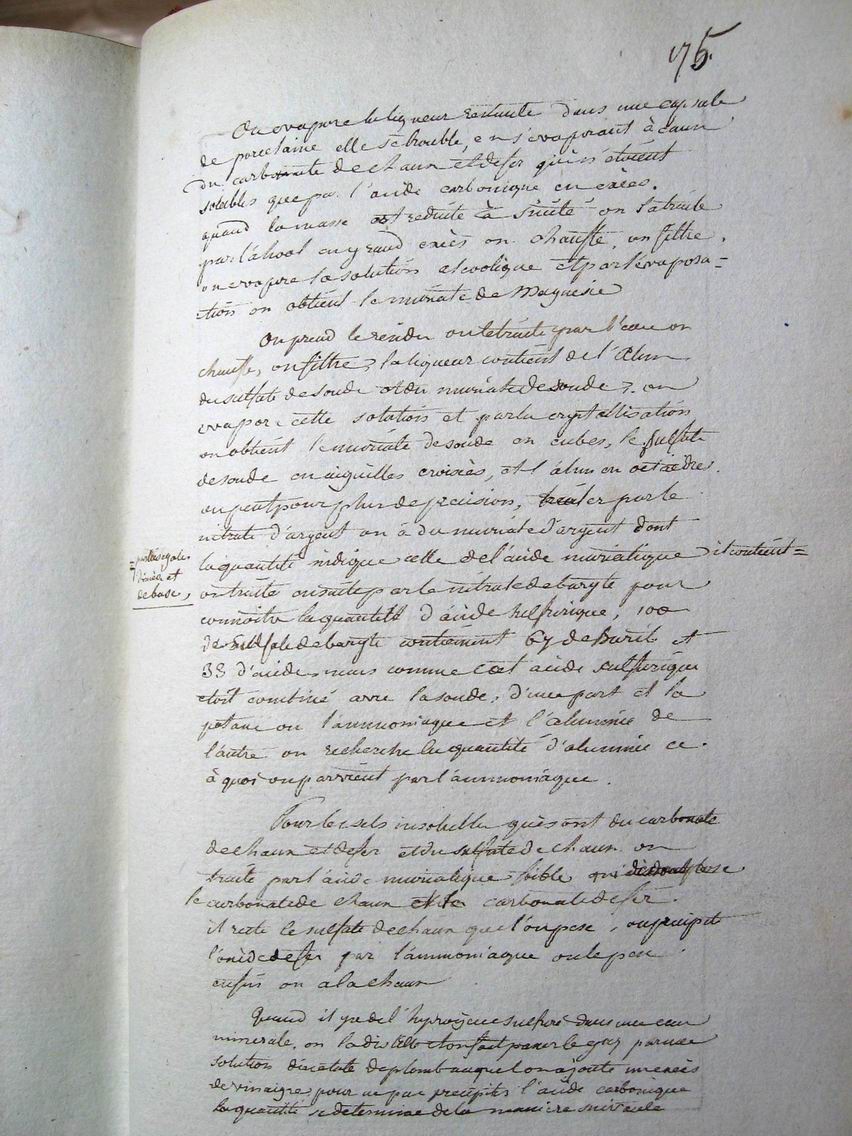 175.
On evapore la liqueur restante dans une capsule
de porcelaine elle se trouble, en s'evaporant à l'aun
du carbonate de chaux et de fer qui n'etoient
solubles que par l'acide carbonique en excès.
quand la masse est reduite à siccité on la traite
par l'alcool en grand excès on chauffe, on filtre,
on evapore la solution alcoolique et par l'évapora=
tion on obtient le muriate de Magnesie
On prend le residu on le traite par l'eau on
chauffe, on filtre, la liqueur contient de l'Alun
du sulfate de soude et du muriate de soude, on
evapore cette solution et par la crystallisation
on obtient le muriate de soude en cubes, le sulfate
de soude en aiguilles croisées, et l'alun en octaedres.
on peut pour plus de precision, traiter par le
nitrate d'argent on à du muriate d'argent dont
la quantité indique celle de l'acide muriatique il contient=
=parties egales
d'acide et
de base,
on traite ensuite par le nitrate de baryte pour
connoitre la quantité d'acide sulfurique, 100
de Sulfate de baryte contiennent 67 de Barit et
33 d'acide, mais comme cet acide sulfurique
etoit combiné avec la soude, d'une part et la
potasse ou l'ammoniaque et l'alumine de
l'autre on recherche la quantité d'alumine ce
à quoi on parvient par l'ammoniaque.
Pour les sels insolubles qui sont du carbonate
de chaux et de fer et du sulfate de chaux on
traite par l'acide muriatique foible qui dissout
le carbonate de chaux et le carbonate de fer.
il reste le sulfate de chaux que l'on pese, on precipite
l'oxide de fer par l'ammoniaque on le pese
enfin on a la chaux
Quand il y a de l'hydrogene sulfuré dans une eau
minerale, on la distille et on fait passer le gaz par une
solution d'acetate de plomb auquel on ajoute un excès
de vinaigre pour ne pas precipiter l'acide carbonique
la quantité se determine de la maniere suivante